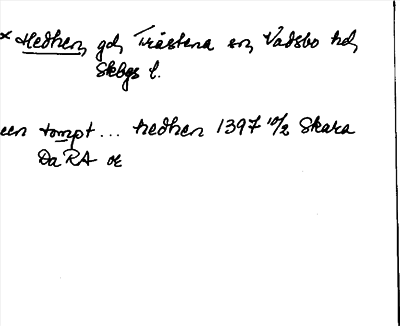 * Hedhen, gd, Trästena sn, Vadsbo hd,
Skbgs l.
een tompt... hedhen 1397 10/2 Skara
Da RA or